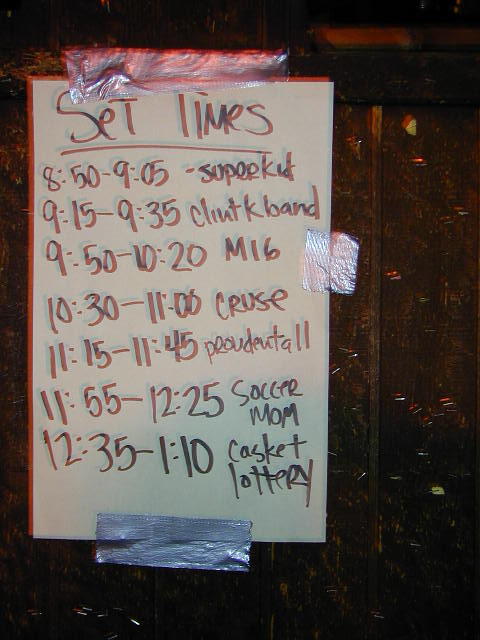 SET TIMES
8:50-9:05 - superkut
9:15-9:35 clintkband
9:50-10:20 M16
10:30-11:00 CRUSE
11:15-11:45 proudentall
11:55-12:25 SOCCER
MOM
12:35-1:10 Casket
lottERY